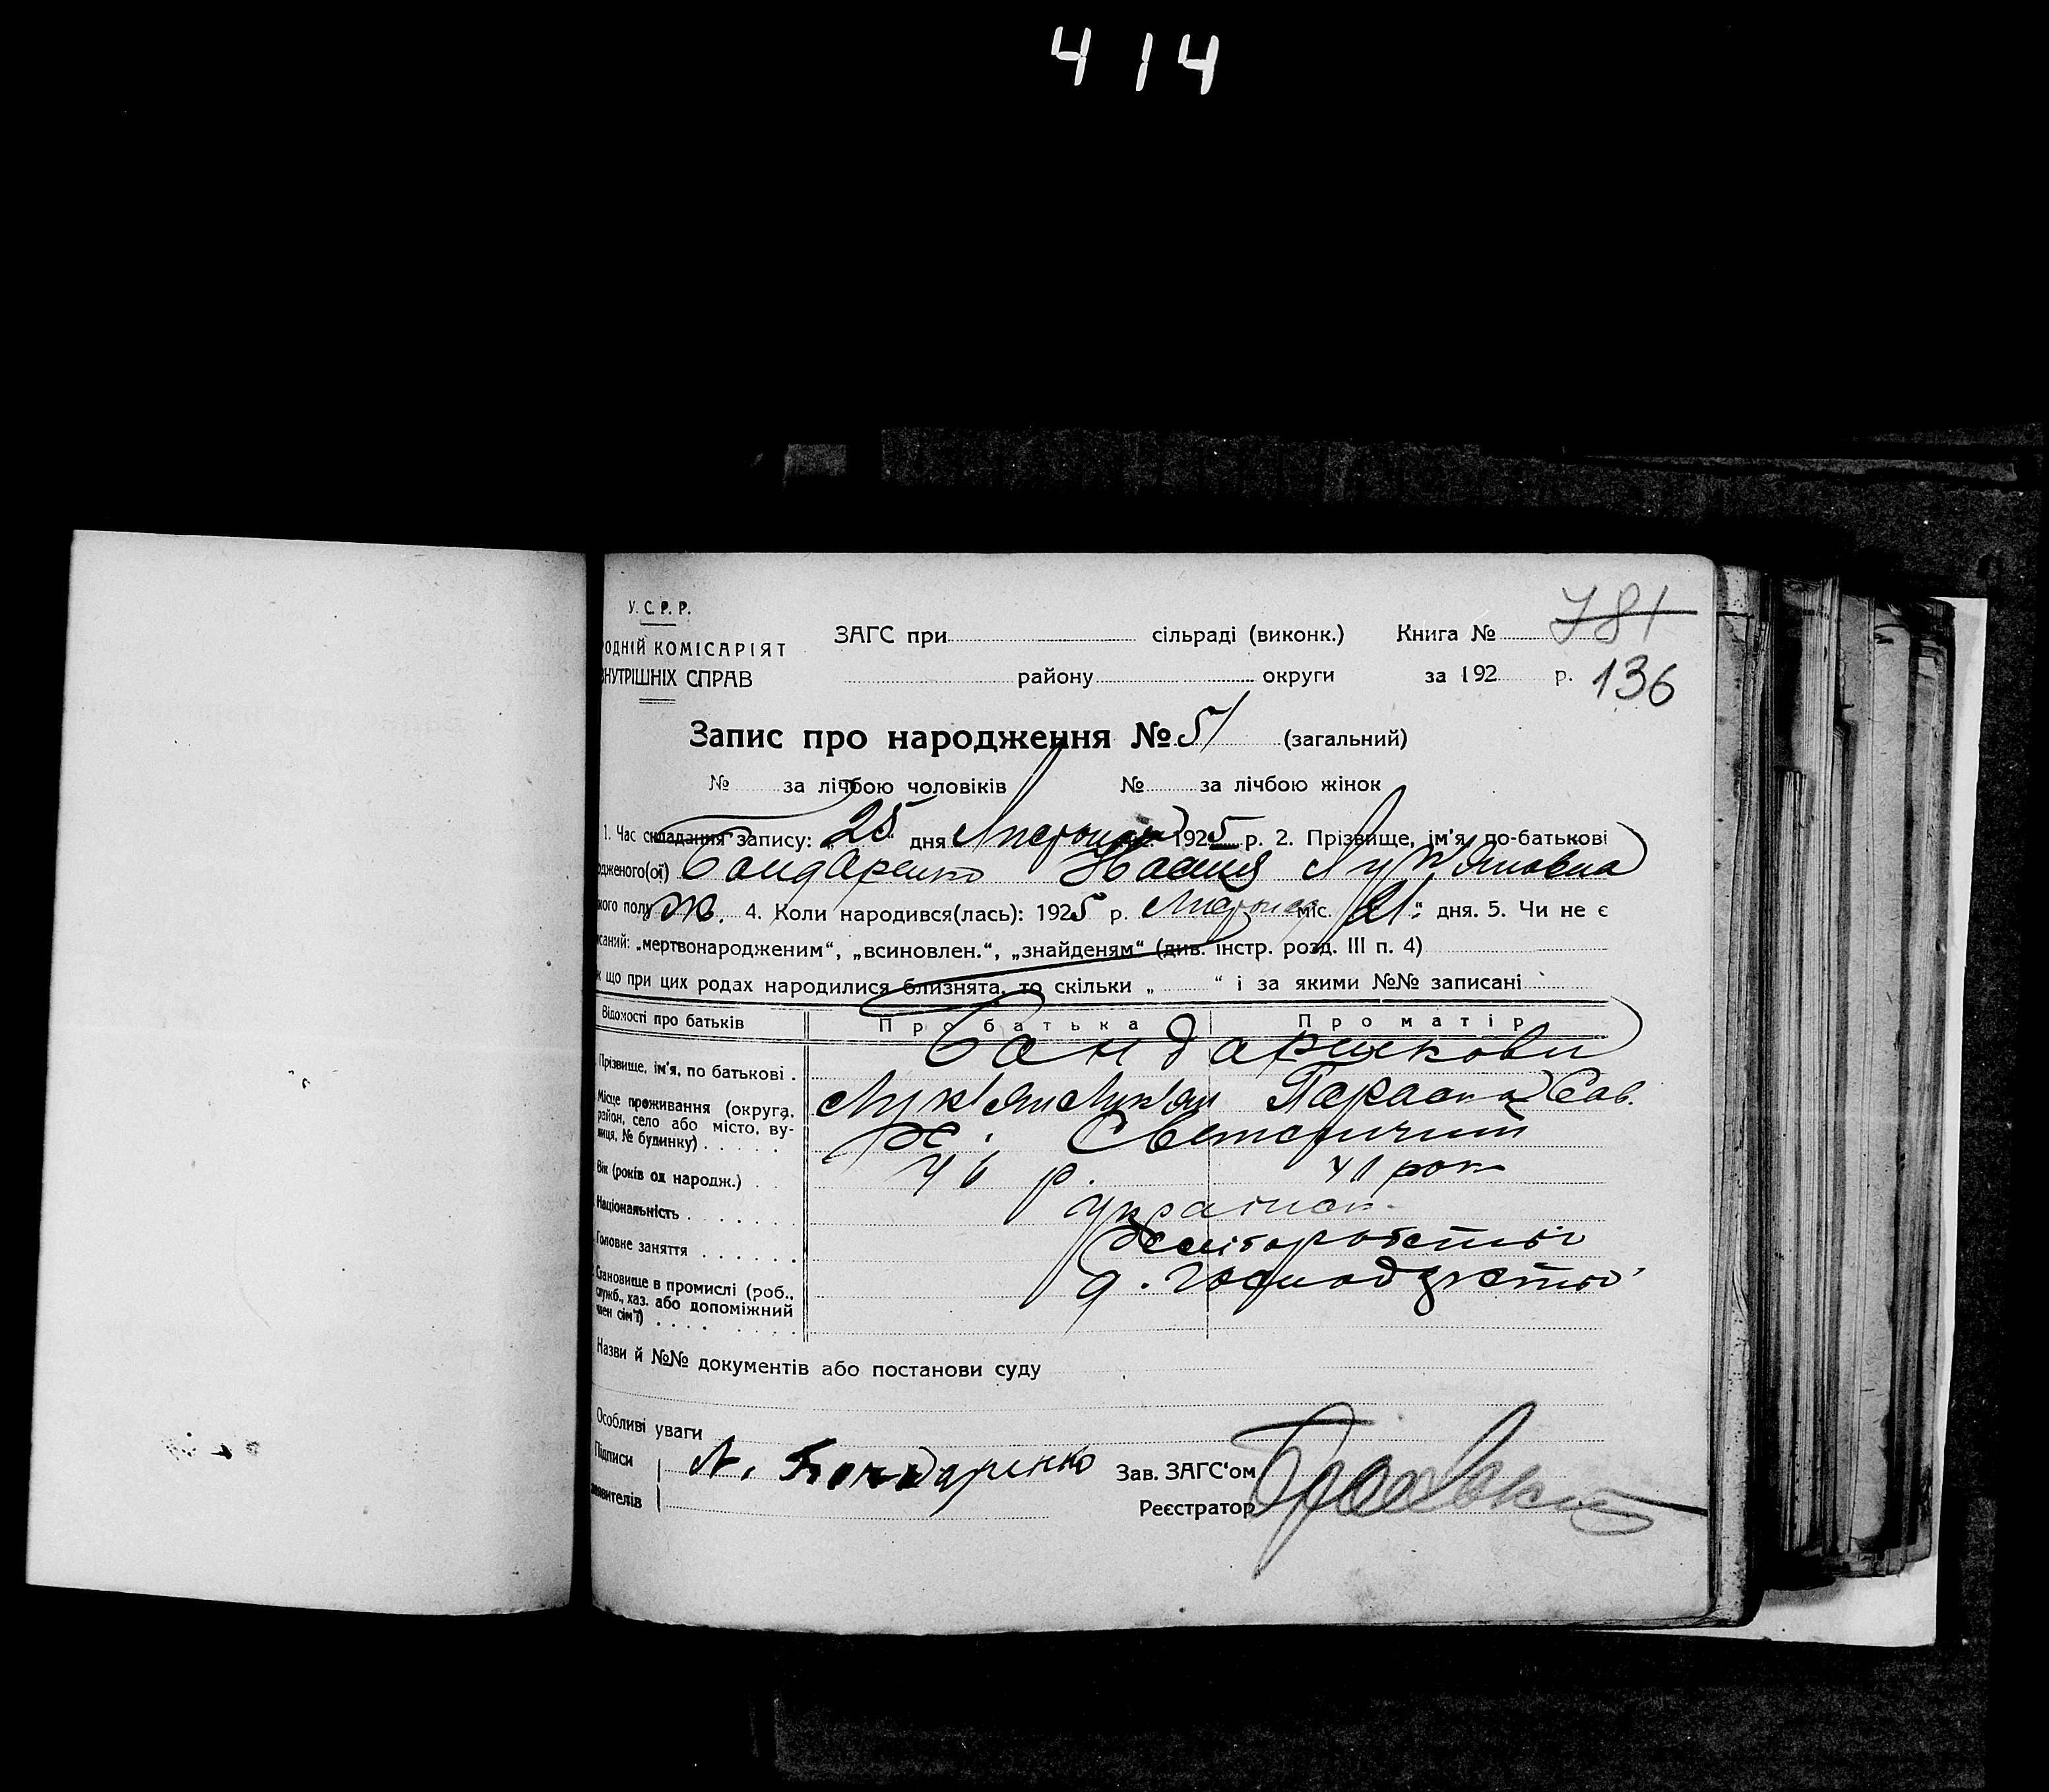 414
У.С.Р.Р.
ОДНІЙ КОМІСАРІЯТ
ВНУТРІШНІХ СПРАВ
ЗАГС при сільраді (виконк.) Книга № 781
району округи за 192 р. 136
Запис про народження № 51 (загальний)
№ за лічбою чоловіків № за лічбою жінок
1. Час складання запису: „25“ дня Листопад 1925 р. 2. Прізвище, ім'я, по-батькові
одженого(ої) Бондаренко Настя Лук'яновна
кого полу ж. 4. Коли народився(лась): 1925 р. Листопад міс. „21“ дня. 5. Чи не є
исаний: „мертвонародженим“, „всиновлен.“, „знайденям“ (див. інстр. розд. III п. 4)
к що при цих родах народилися близнята, то скільки „ “ і за якими №№ записані
Відомості про батьків Про батька Про матір
Бондаренкови
Прізвище, ім'я, по батькові
Лук'ян Лук'ян Параска Сав.
Місце проживання (округа, район, село або місто, вулиця, № будинку)
Вік (років од народж.) 46 р. 41 рок
Національність україн.
Головне заняття
Становище в промислі (роб., служб., хаз. або допоміжний член сім'ї)
Назви й №№ документів або постанови суду
Особливі уваги
Підписи Л. Бондаренко Зав. ЗАГС'ом
заявителів Реєстратор